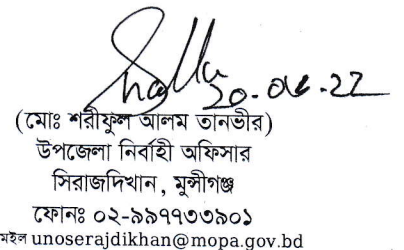 20-06-22
(মোঃ শরীফুল আলম তানভীর)
উপজেলা নির্বাহী অফিসার
সিরাজদিখান, মুন্সীগঞ্জ
ফোনঃ ০২-৯৯৭৭৩৩৯০১
মইল unoserajdikhan@mopa.gov.bd